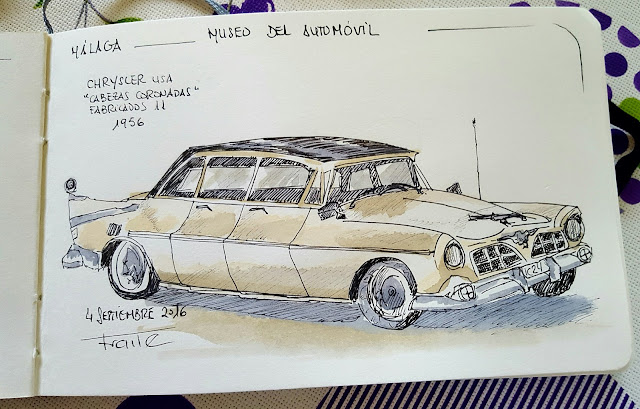 MÁLAGA — MUSEO DEL AUTOMÓVIL
CHRYSLER USA
"CABEZAS CORONADAS"
FABRICADOS 11
1956
4 SEPTIEMBRE 2016